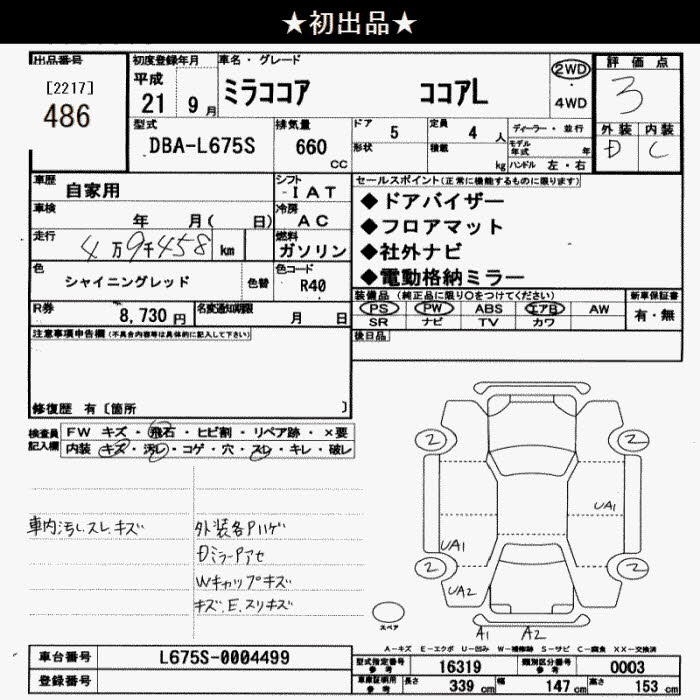 ★初出品★
出品番号
[2217]
486
初度登録年月
平成
21 9月
車名・グレード
ミラココア ココアL
2WD
4WD
評価点
3
外装 内装
D C
型式
DBA-L675S
排気量
660
cc
ドア 5
定員 4 人
ディーラー・並行
形状
積載 kg
モデル年式 年
ハンドル 左・右
車歴
自家用
シフト
IAT
車検
年 月( 日)
冷房
AC
走行
4万9千458 km
燃料
ガソリン
色
シャイニングレッド
色替
色コード
R40
R券
8,730 円
名変通知期限
月 日
セールスポイント(正常に機能するものに限ります)
◆ドアバイザー
◆フロアマット
◆社外ナビ
◆電動格納ミラー
装備品(純正品に限り○をつけてください)
PS PW ABS エアB AW
SR ナビ TV カワ
新車保証書
有・無
後日品
注意事項申告欄(不具合内容等は具体的に記入して下さい)
修復歴 有〔箇所 〕
検査員記入欄
FW キズ・飛石・ヒビ割・リペア跡・×要
内装 キズ・汚レ・コゲ・穴・スレ・キレ・破レ
車内汚レ.スレ.キズ
外装各Pハゲ
DミラーPアセ
Wキャップキズ
キズ.E.スリキズ
2
2
UA1
UA1
2
2
UA2
スペア
A1 A2
A-キズ E-エクボ U-凹み W-補修跡 S-サビ C-腐食 XX-交換済
車台番号
L675S-0004499
登録番号
型式指定番号
参考
16319
類別区分番号
参考
0003
車庫証明用
参考
長さ 339 cm
幅 147 cm
高さ 153 cm